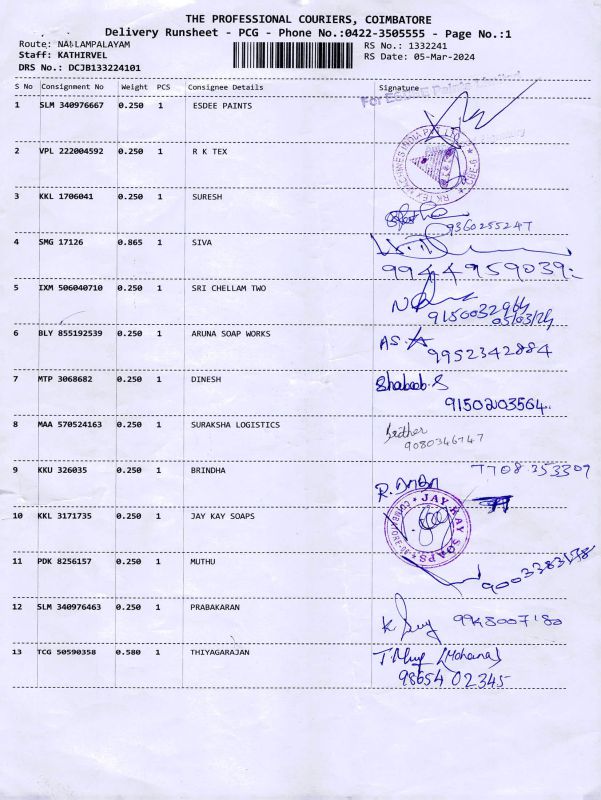 THE PROFESSIONAL COURIERS, COIMBATORE
Delivery Runsheet - PCG - Phone No.:0422-3505555 - Page No.:1
Route: NALLAMPALAYAM
RS No.: 1332241
Staff: KATHIRVEL
RS Date: 05-Mar-2024
DRS No.: DCJB133224101
S No Consignment No Weight PCS Consignee Details Signature
1 SLM 340976667 0.250 1 ESDEE PAINTS
2 VPL 222004592 0.250 1 R K TEX
RK TEX MACHINES INDIA PVT LTD
3 KKL 1706041 0.250 1 SURESH
9360255247
4 SMG 17126 0.865 1 SIVA
9944959039
5 IXM 506040710 0.250 1 SRI CHELLAM TWO
9150032964
05/03/24
6 BLY 855192539 0.250 1 ARUNA SOAP WORKS
AS
9952342884
7 MTP 3068682 0.250 1 DINESH
Shabeeb.S
9150203564
8 MAA 570524163 0.250 1 SURAKSHA LOGISTICS
9080346747
9 KKU 326035 0.250 1 BRINDHA
7708353309
10 KKL 3171735 0.250 1 JAY KAY SOAPS
JAY KAY SOAPS
11 PDK 8256157 0.250 1 MUTHU
12 SLM 340976463 0.250 1 PRABAKARAN
13 TCG 50590358 0.580 1 THIYAGARAJAN
(Mohana)
98654 02345